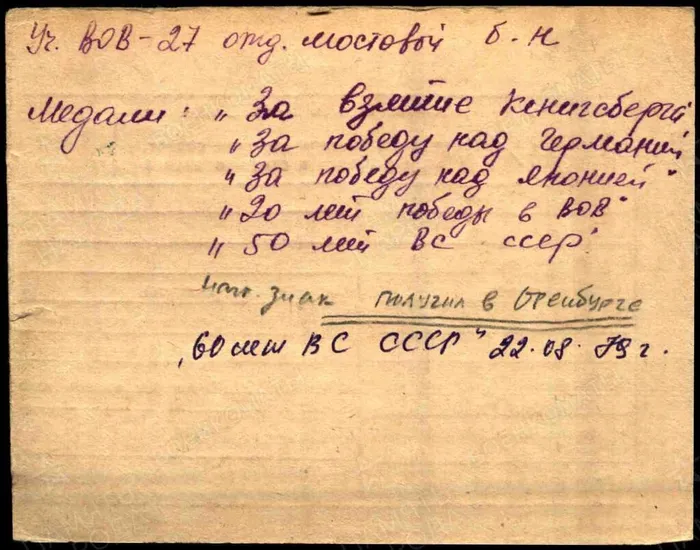 Уч. ВОВ-27 отд. мостовой б-н
Медали: „За взятие Кенигсберга"
„За победу над Германией
„За победу над Японией"
„20 лет победы в ВОВ"
„50 лет ВС СССР"
знак получил в Оренбурге
„60 лет ВС СССР" 22.08.79 г.